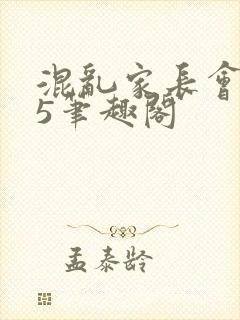 混亂家長會
5筆趣閣
孟泰龄